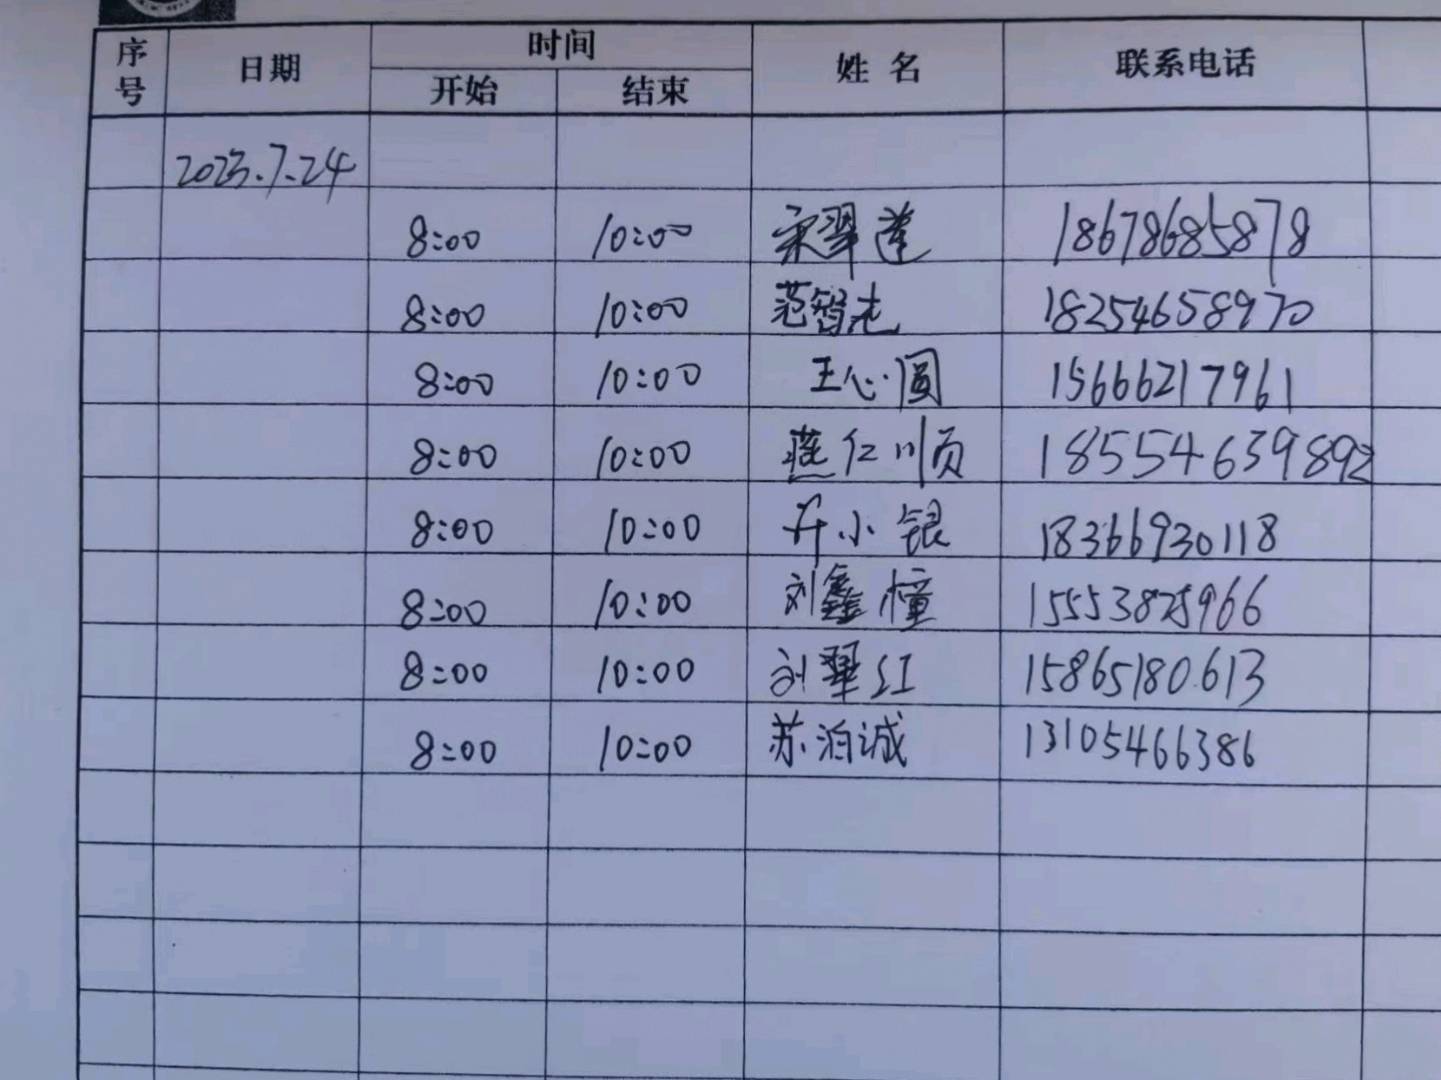 序号 日期 时间 姓名 联系电话
开始 结束
2023.7.24
8:00 10:00 宋翠莲 18678685878
8:00 10:00 范智杰 18254658970
8:00 10:00 王心圆 15666217961
8:00 10:00 燕仁顺 18554639892
8:00 10:00 小银 18366930118
8:00 10:00 刘鑫橦 15553825966
8:00 10:00 刘翠红 15865180613
8:00 10:00 苏泊诚 13105466386